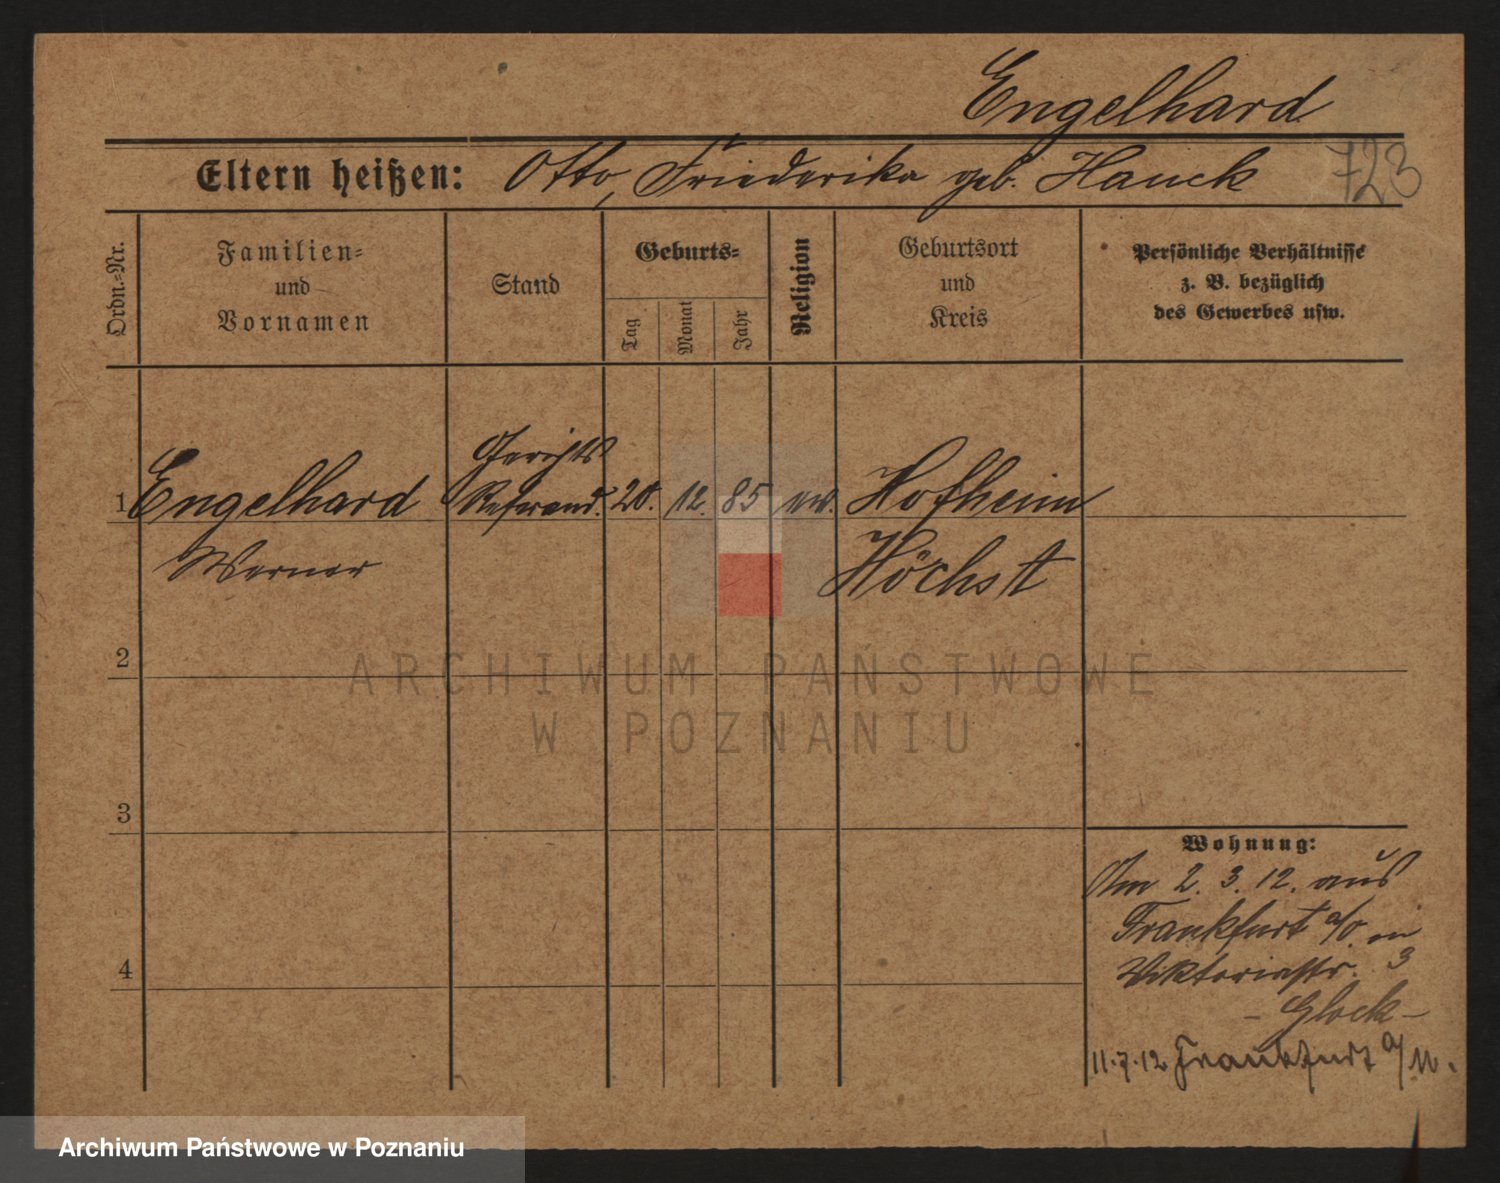 Engelhard
Eltern heißen: Otto, Friederika geb. Hauck 723
Ordn.-Nr.
Familien-
und
Vornamen
Stand
Geburts-
Tag
Monat
Jahr
Religion
Geburtsort
und
Kreis
Persönliche Verhältnisse
z. B. bezüglich
des Gewerbes usw.
Gerichts
1 Engelhard Referend. 20. 12. 85 ev. Hofheim
Werner Höchst
2
ARCHIWUM PAŃSTWOWE
W POZNANIU
3
4
Wohnung:
Am 2. 3. 12. aus
Frankfurt a/O. in
Viktoriastr. 3
- Glock -
11.7.12 Frankfurt a/M.
Archiwum Państwowe w Poznaniu